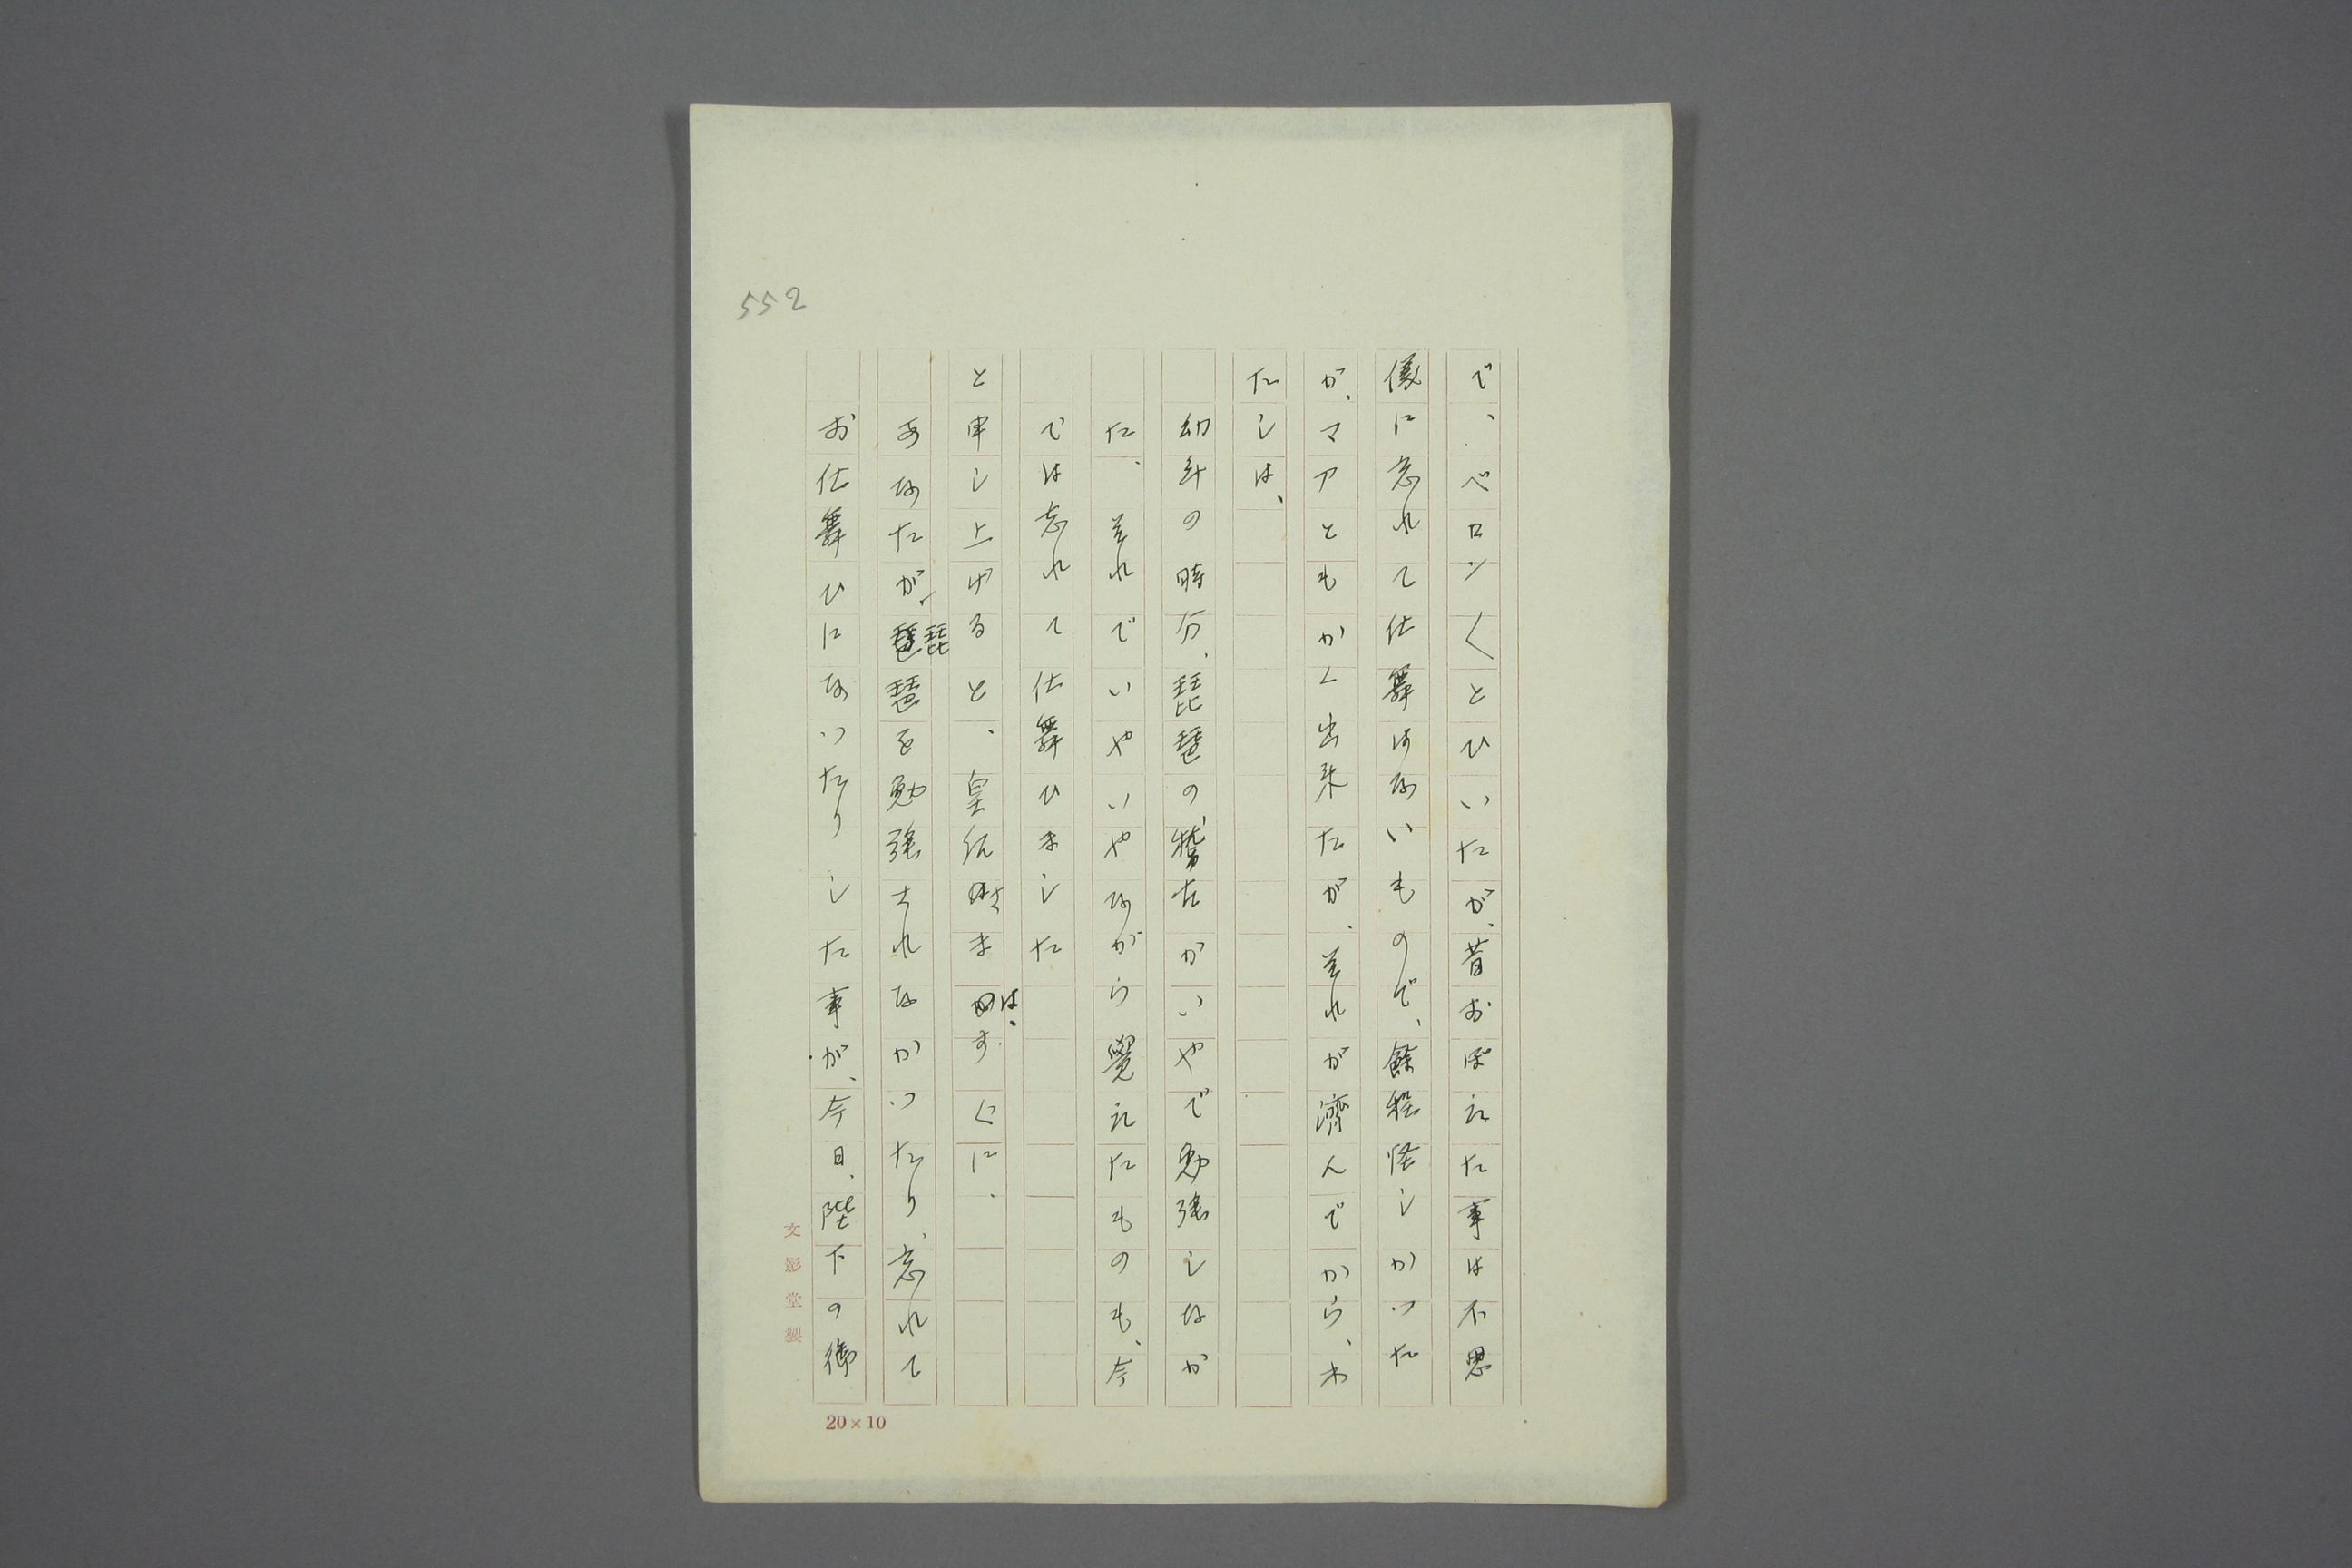 552
で、ベロン〱とひいたが、昔おぼえた事は不思
儀に忘れて仕舞はないもので、餘程怪しかつた
が、マアともかく出来たが、それが濟んでから、わ
たしは、
幼年の時分、琵琶の稽古がいやで勉強しなか
た、それでいやいやながら覺えたものも、今
では忘れて仕舞ひました
と申し上げると、皇后さまは、すぐに、
あなたが、琵琶を勉強されなかつたり、忘れて
お仕舞ひになつたりした事が、今日、陛下の御
文影堂製
20×10